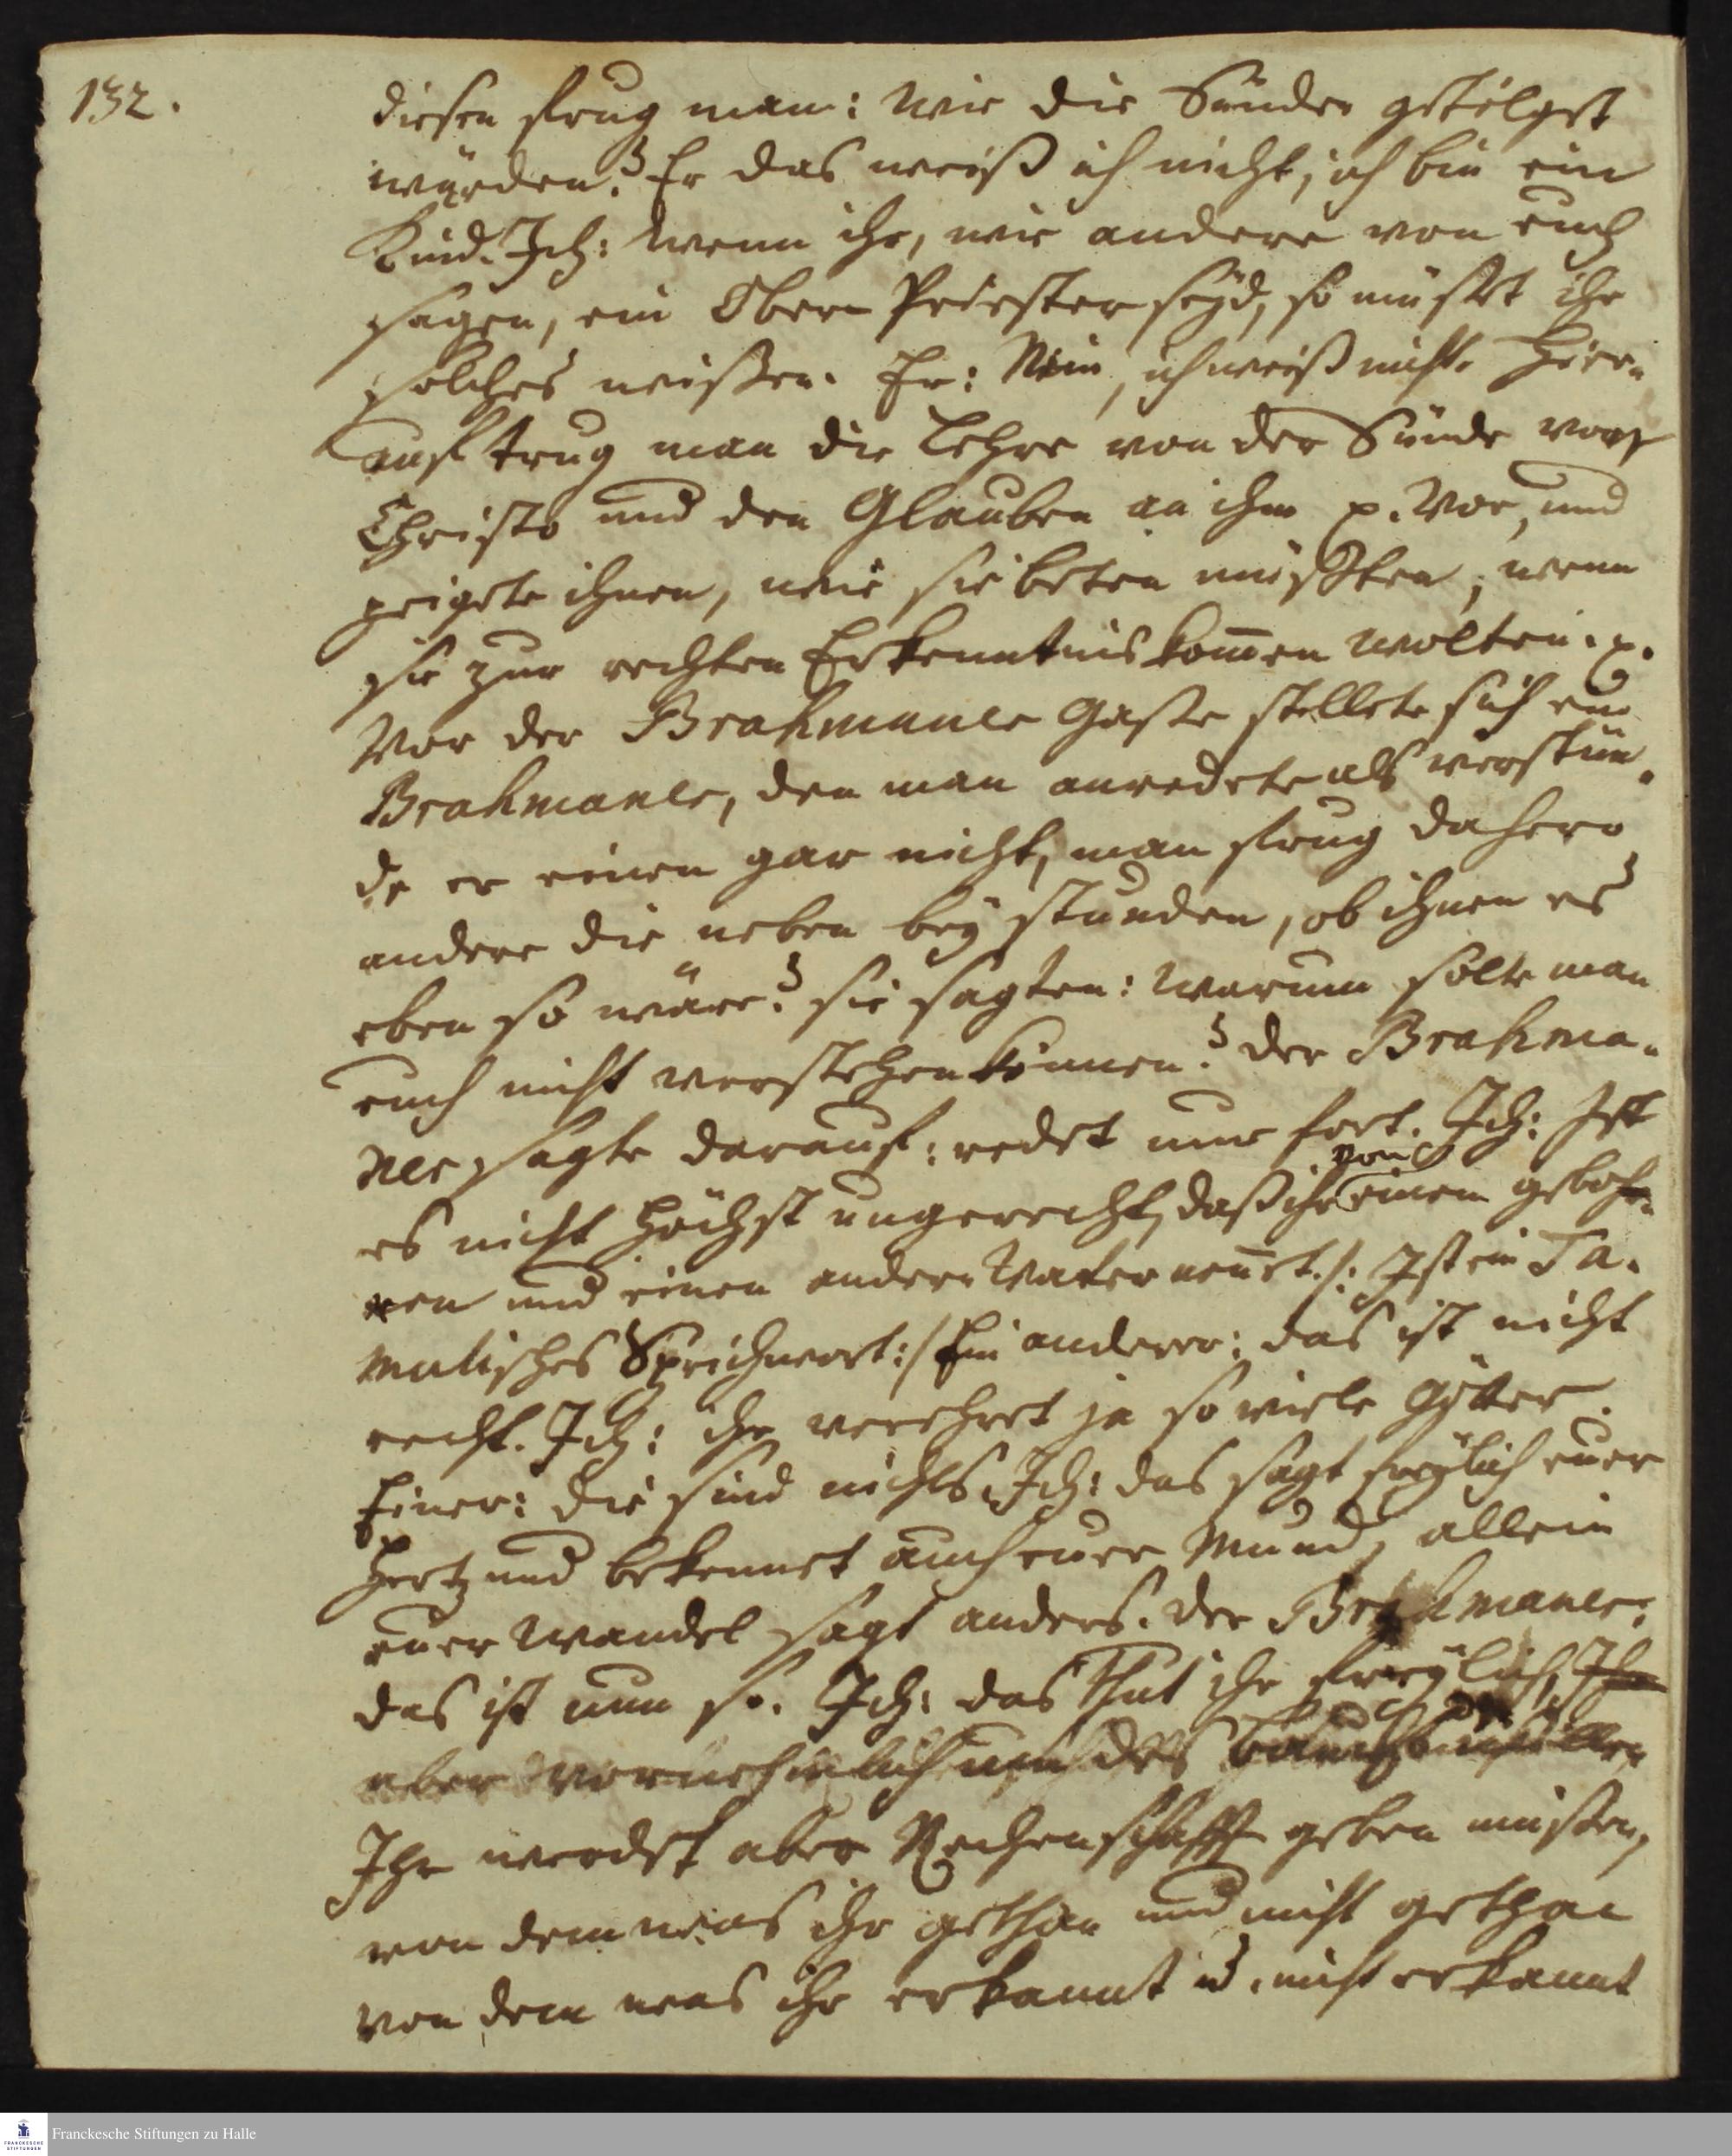 132.
diesen frug man: wie die Sünden getilget
würden? Er das weiß ich nicht, ich bin ein
Kind. Ich: wenn ihr, wie andere von euch
sagen, ein Ober Priester seyd, so müßet ihr
solches wißen. Er: Nein, ich weiß nicht. Hier-
auf trug man die Lehre von der Sünde von
Christo und den Glauben an ihm p. vor, und
zeigete ihnen, wie sie beten müßten, wenn
sie zur rechten Erkenntnis kom̄en wolten. p.
Vor der Brahmaner Gaße stellete sich ein
Brahmaner, den man anredete als verstün-
de er einen gar nicht, man frug dahero
andere die neben bey stunden, ob ihnen es
eben so wäre? sie sagten: warum solte man
euch nicht verstehen können? der Brahma-
ner sagte darauf: redet nur fort. Ich: Ist
es nicht höchst ungerecht, daß ihr von einem geboh-
ren und einen andern Vater nen̄et. /: Ist ein Ta-
mulisches Sprichwort :/ Ein anderer: das ist nicht
recht. Ich: ihr verehret ja so viele Götter.
Einer: die sind nichts. Ich: das sagt freylich euer
Hertz und bekennet auch euer Mund, allein
euer Wandel sagt anders. der Brahmaner:
das ist nun so. Ich: das thut ihr freylich, Ihr
aber vornehmlich um des Bauchs willen
Ihr werdet aber Rechenschafft geben müßen,
von dem was ihr gethan und nicht gethan
von dem was ihr erkannt u. nicht erkannt
Franckesche Stiftungen zu Halle
FRANCKESCHE
STIFTUNGEN